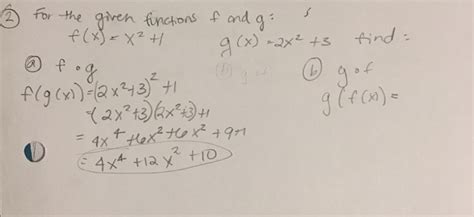 ② For the given functions f and g:
f(x) = x² + 1 g(x) = 2x² + 3 find:
ⓐ f ∘ g
f(g(x)) = (2x²+3)² + 1
(2x²+3)(2x²+3)+1
= 4x⁴ + 6x² + 6x² + 9+1
= 4x⁴ + 12x² + 10
ⓑ g ∘ f
g(f(x)) =